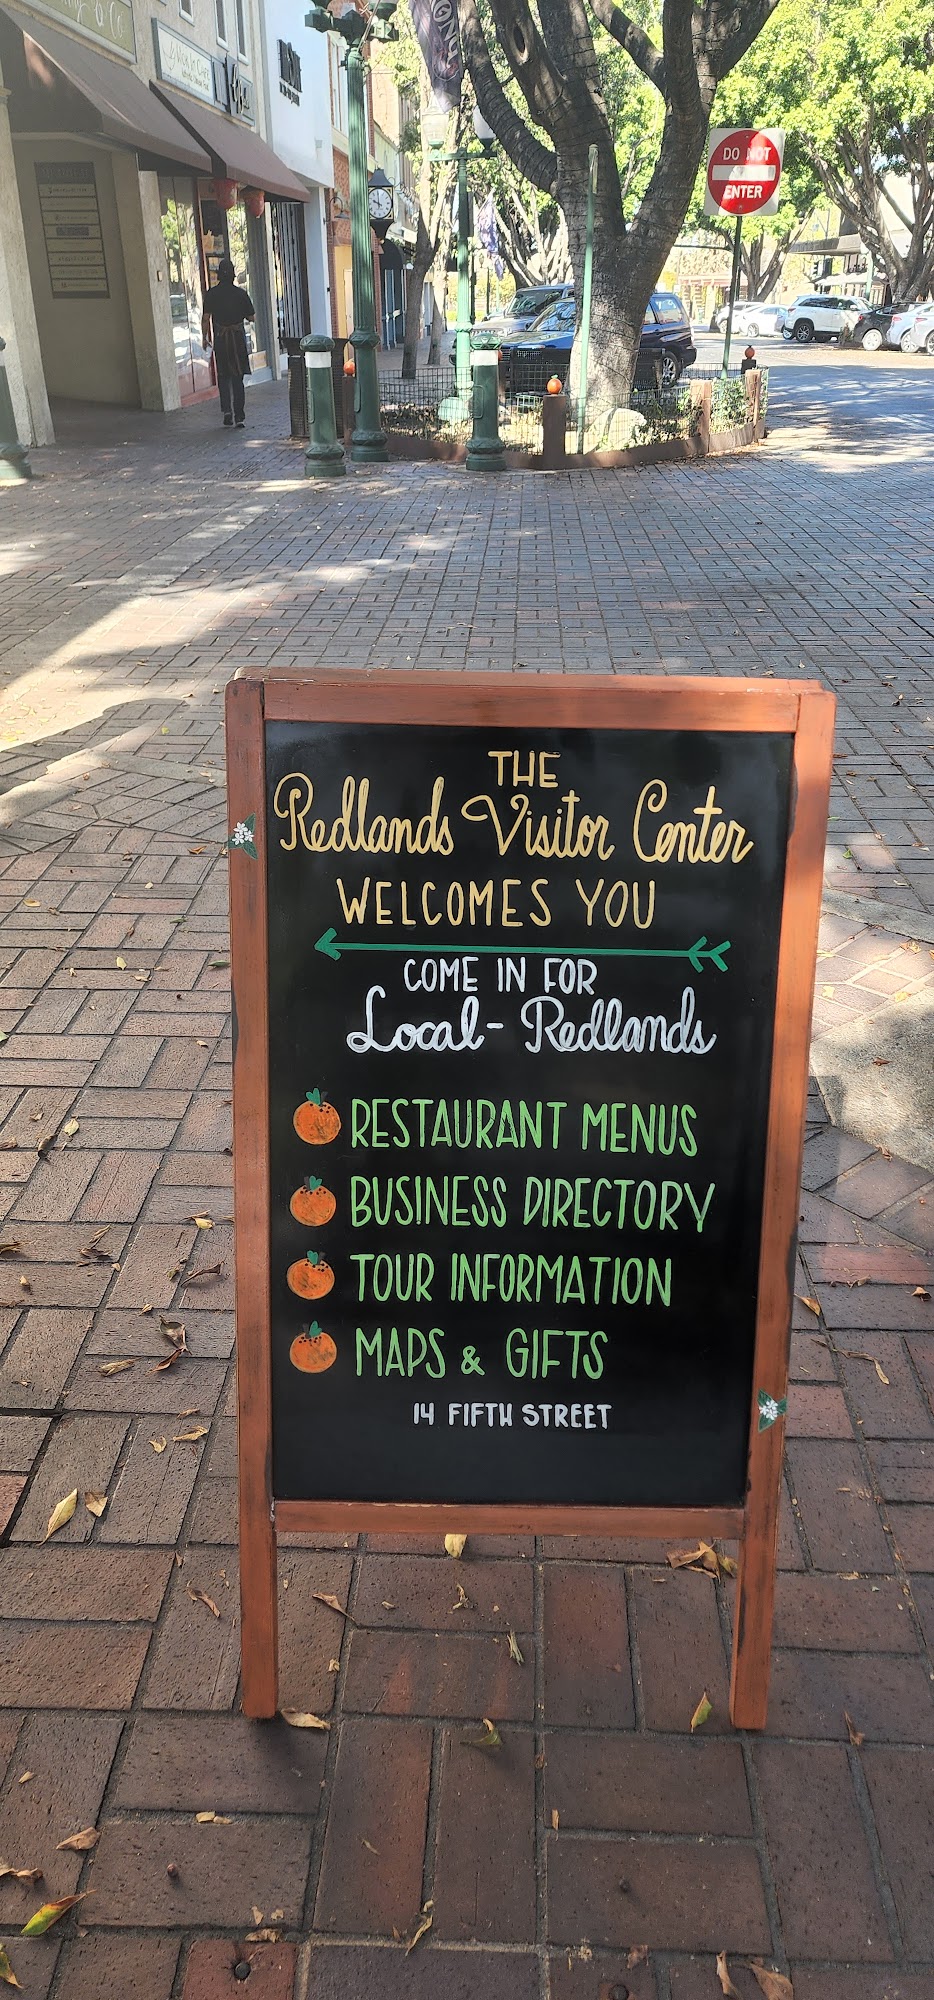 DO NOT
ENTER
THE
Redlands Visitor Center
WELCOMES YOU
COME IN FOR
Local - Redlands
RESTAURANT MENUS
BUSINESS DIRECTORY
TOUR INFORMATION
MAPS & GIFTS
14 FIFTH STREET